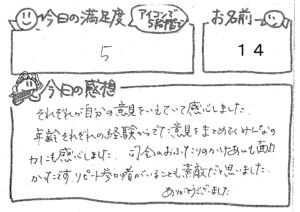 今日の満足度
アイコンで5段階で
お名前
5
14
今日の感想
それぞれが自分の意見をいえていて感心しました
年齢それぞれの経験からでた意見をまとめていくみんなの
力にも感心しました 司会のおふたりのかけあいも面白
かったです リピート参加者がいることも素敵だと思いました
ありがとうございました